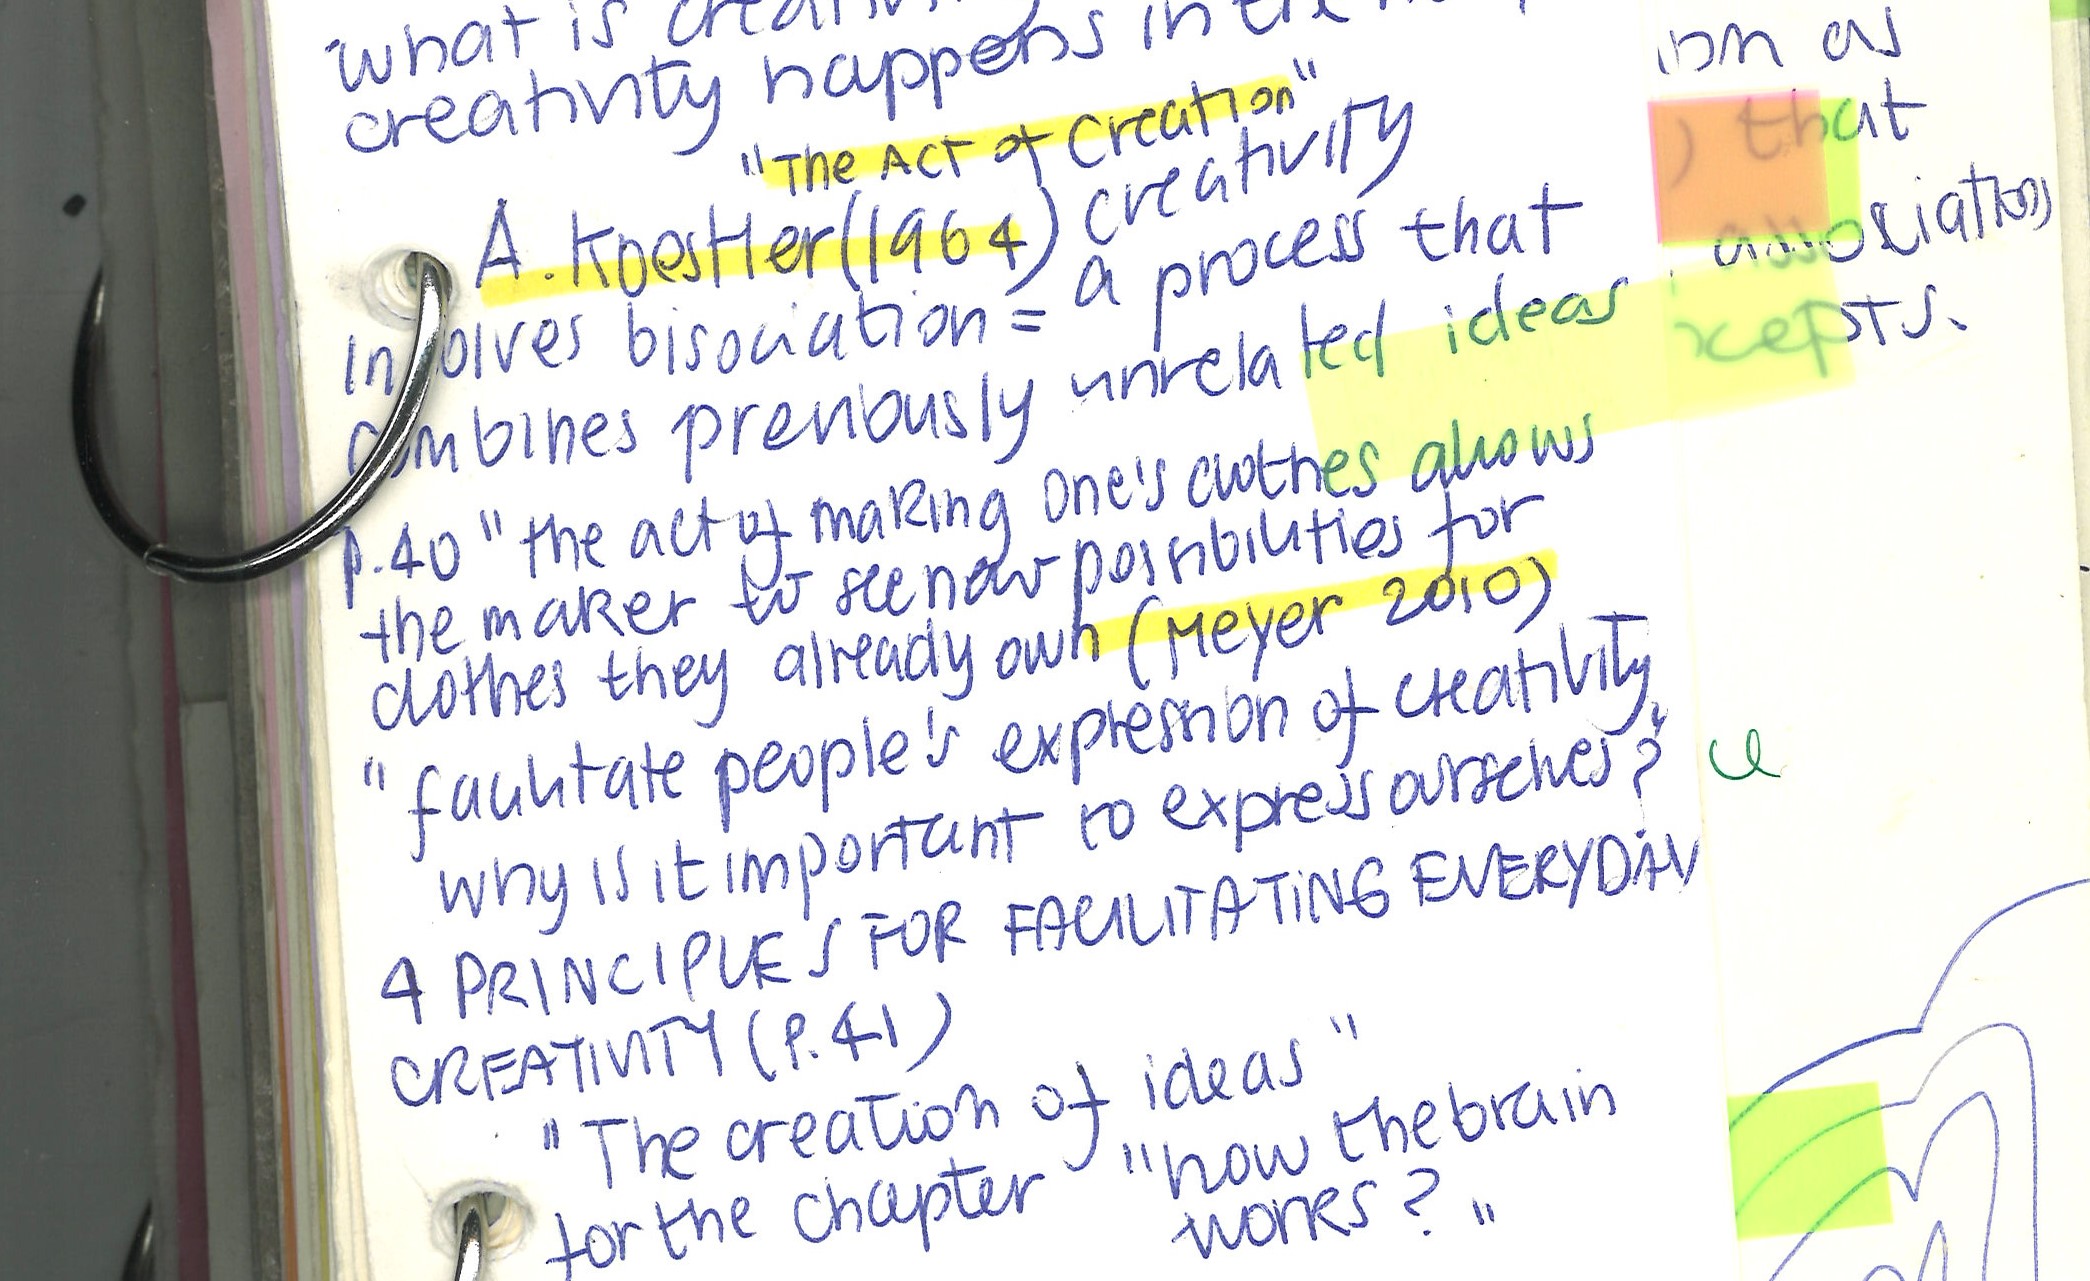 what is
creativity happens in the
"The Act of Creation"
A. Koestler (1964) creativity
involves bisociation = a process that
combines previously unrelated ideas
p.40 "the act of making one's clothes allows
the maker to see new possibilities for
clothes they already own (Meyer 2010)
"facilitate people's expression of creativity"
why is it important to express ourselves?
4 PRINCIPLES FOR FACILITATING EVERYDAY
CREATIVITY (P.41)
"The creation of ideas"
for the chapter "how the brain
works?"
as
) that
associations